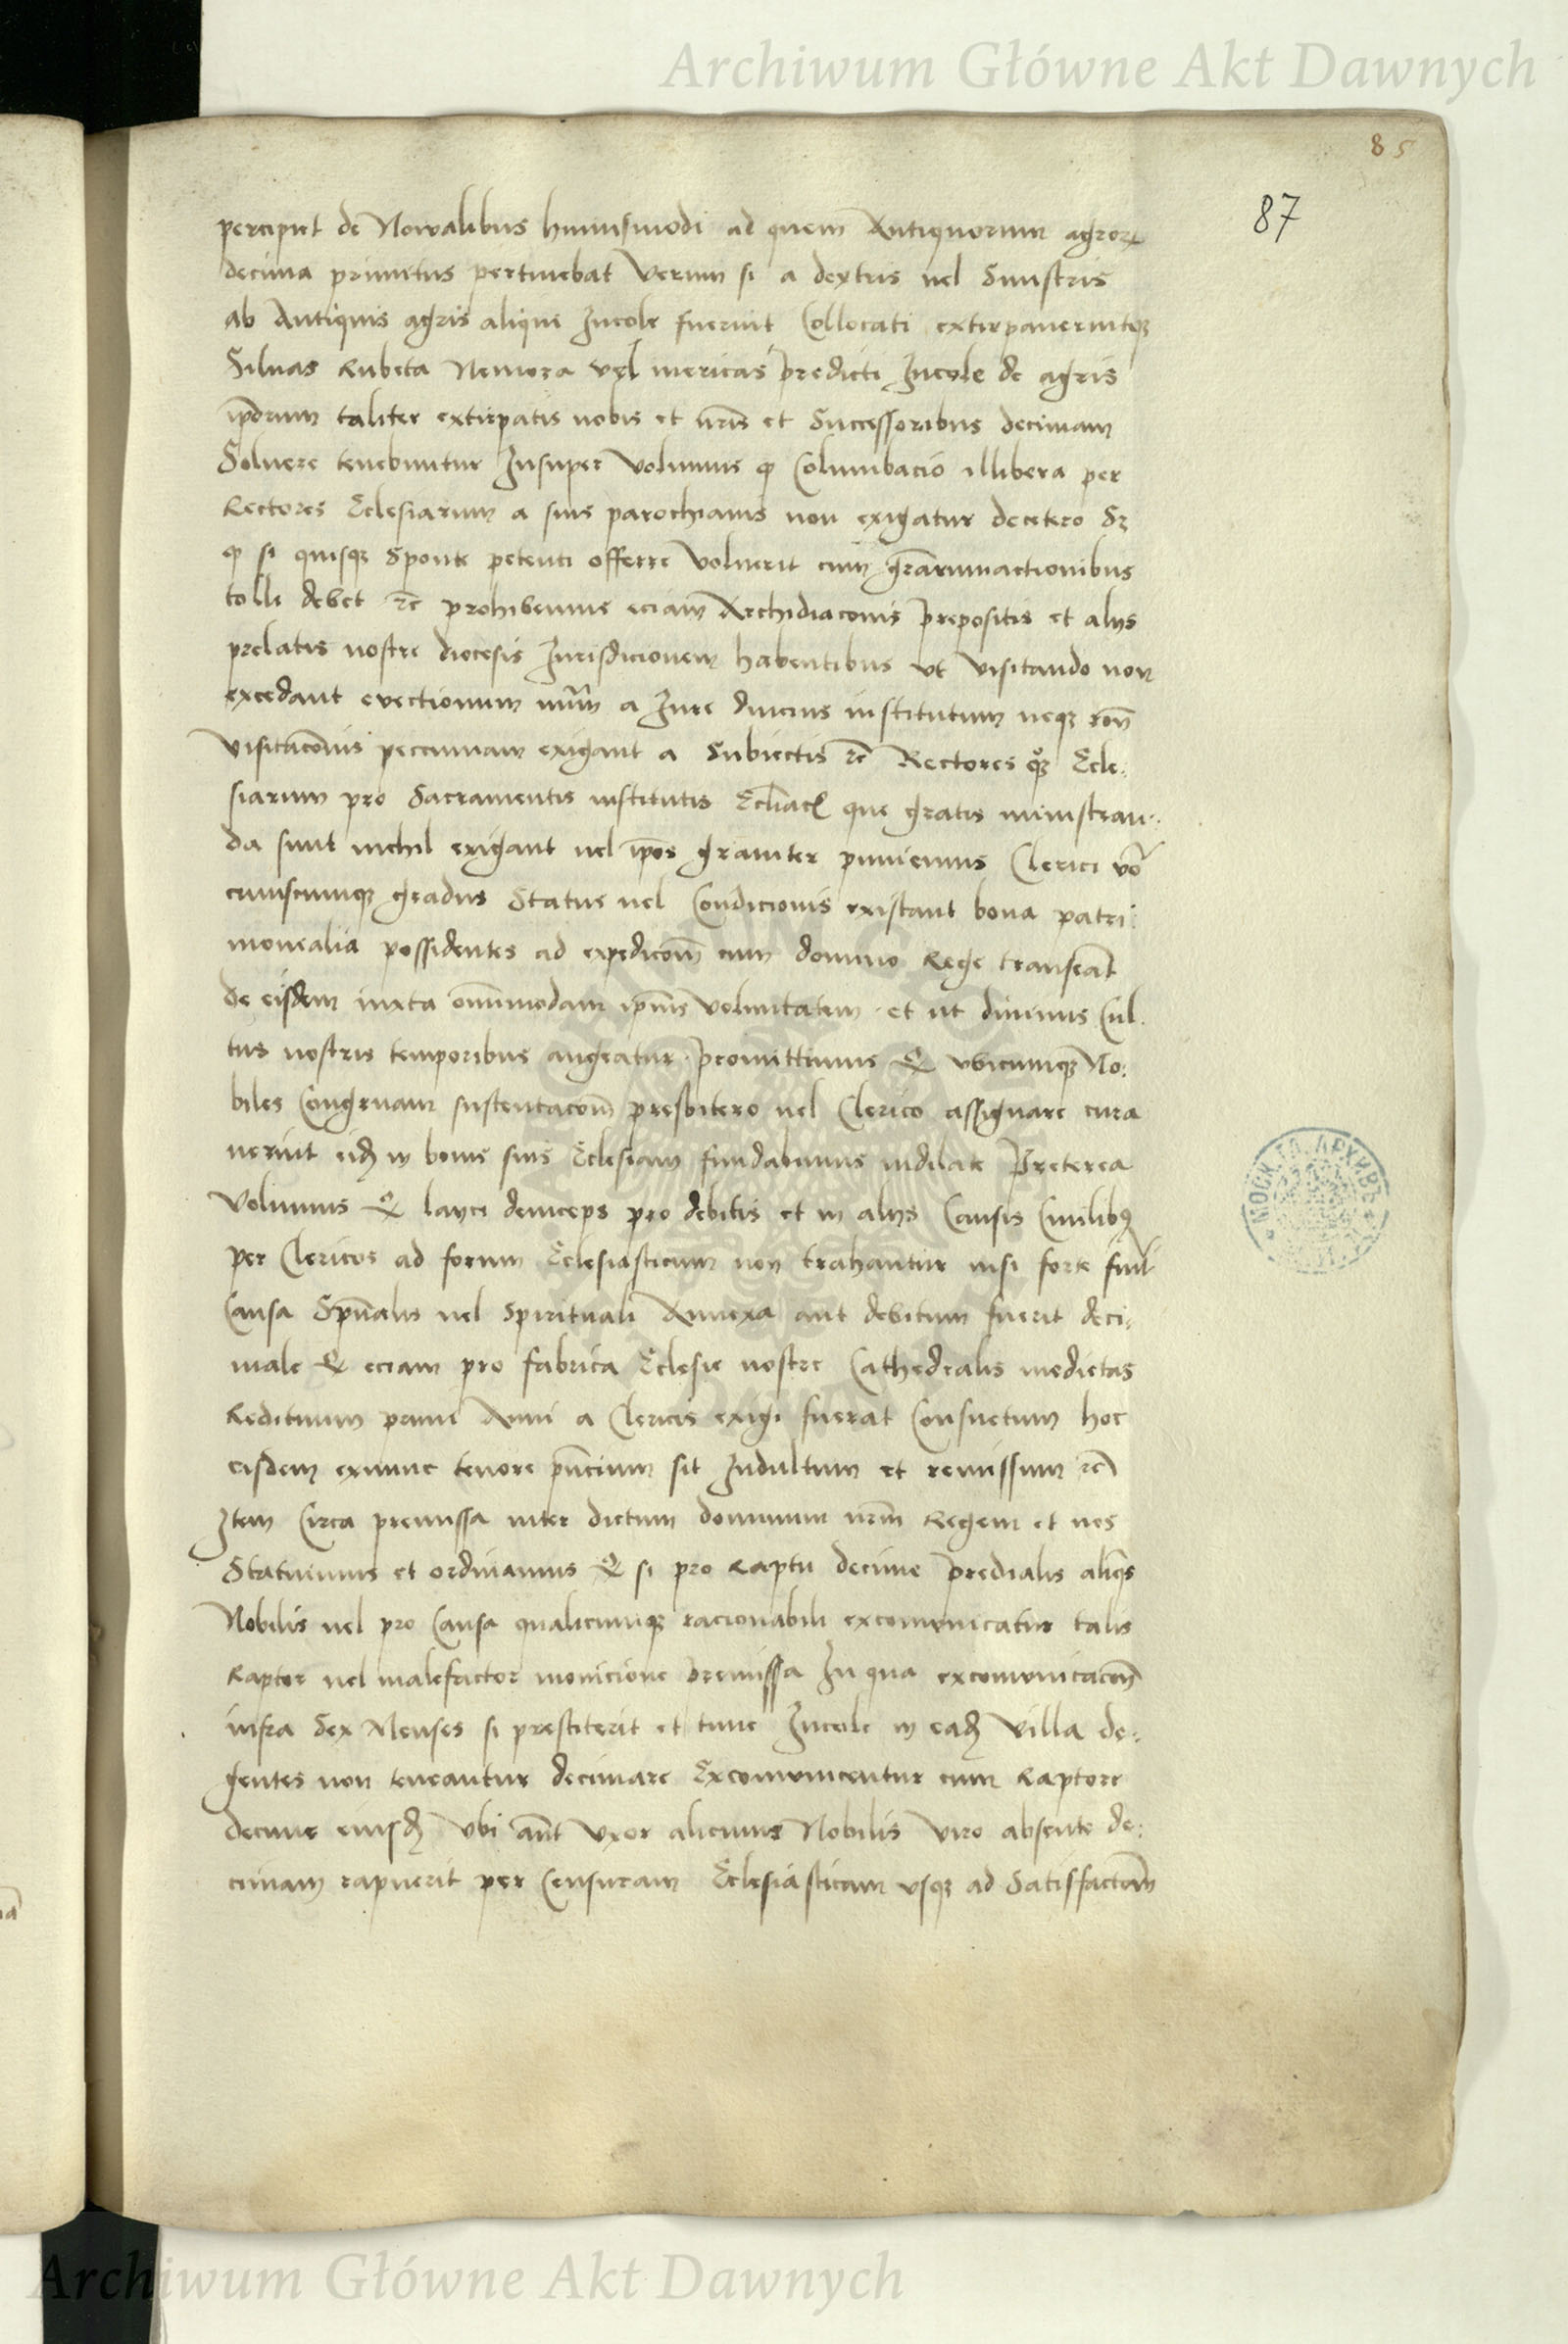 Archiwum Główne Akt Dawnych
85
87
percipiet de Nowalibus huiusmodi ad quem Antiquorum agrorꝝ
decima primitus pertinebat Verum si a dextris uel Sinistris
ab Antiquis agris aliqui Incole fuerint Collocati extirpauerintqꝫ
Siluas Rubeta Nemora vel mericas predicti Incole de agris
ip̄orum taliter extirpatis nobis et nr̄is et Successoribus decimam
Soluere tenebuntur Insuper Volumus ꝙ Columbacio illibera per
Rectores Eclesiarum a suis parochianis non exigatur decetero Sꝫ
ꝙ si quisqꝫ Sponte petenti offerre Voluerit cum gr̄arumactionibus
tolli debet ꝛc̄ prohibemus eciam Archidiaconis prepositis et alijs
prelatis nostre diocesis Iurisdicionem habentibus vt visitando non
excedant evectionum num̄ a Iure institutum neqꝫ ron̄
visitacōnis peccuniam exigant a Subiectis ꝛc̄ Rectores qꝫ Ecle:
siarum pro Sacramentis institutis que gratis ministran:
da sunt nichil exigant uel ip̄os grauiter puniemus Clerici vō
cuiuscumqꝫ gradus Status uel Condicionis existant bona patri:
monealia possidentes ad expedicōm cum domino Rege transeāt
de eisdem iuxta om̄imodam ip̄ius voluntatem et ut diuinus Cul:
tus nostris temporibus augeatur promittimus Q vbicumqꝫ No:
biles Congruam sustentacōm presbitero uel Clerico assignare cura
uerint in bonis suis Eclesiam fundabimus indilate Preterea
Volumus Q layci deinceps pro debitis et in alijs Causis Ciuilibꝫ
per Clericos ad forum Eclesiasticum non trahantur nisi forte
Causa Spūalis uel Spirituali Annexa aut debitum fuerit deci:
male Q eciam pro fabrica Eclesie nostre Cathedralis medietas
Redituum primi Anni a Clericis exigi fuerat Consuetum hoc
eisdem exnunc tenore pn̄cium sit Indultum et remissum ꝛc̄
Item Circa premissa inter dictum dominum nr̄m Regem et nos
Statuimus et ordinamus Q si pro Raptu decime predialis aliq̄s
Nobilis uel pro Causa qualicumqꝫ racionabili excomunicatur talis
Raptor uel malefactor monicione premissa In qua excomunicacōm
infra Sex Menses si prestiterit et tunc Incole in eadꝫ villa de:
gentes non teneantur decimare Excomunicentur cum Raptore
decime eiusdꝫ vbi aūt vxor alicuius Nobilis viro absente de:
cimam rapuerit per Censuram Eclesiasticam vsqꝫ ad Satisfactōm
Archiwum Główne Akt Dawnych